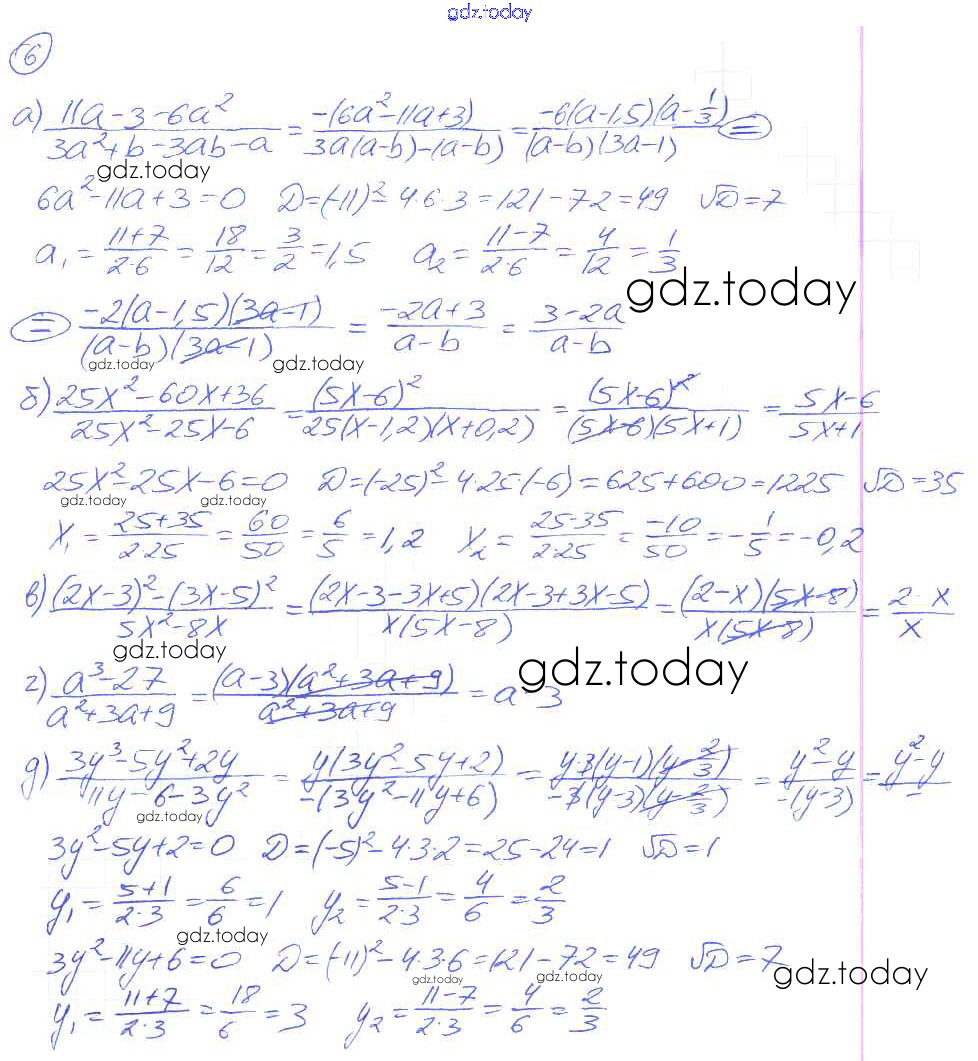 gdz.today
6
а) (11a-3-6a²)/(3a²+b-3ab-a) = (-(6a²-11a+3))/(3a(a-b)-(a-b)) = (-6(a-1,5)(a-1/3))/((a-b)(3a-1)) =
gdz.today
6a²-11a+3=0 D=(-11)²-4·6·3=121-72=49 √D=7
a₁=(11+7)/(2·6)=18/12=3/2=1,5 a₂=(11-7)/(2·6)=4/12=1/3
gdz.today
= (-2(a-1,5)(3a-1))/((a-b)(3a-1)) = (-2a+3)/(a-b) = (3-2a)/(a-b)
gdz.today gdz.today
б) (25x²-60x+36)/(25x²-25x-6) = (5x-6)²/(25(x-1,2)(x+0,2)) = (5x-6)²/((5x-6)(5x+1)) = (5x-6)/(5x+1)
25x²-25x-6=0 D=(-25)²-4·25·(-6)=625+600=1225 √D=35
gdz.today gdz.today
x₁=(25+35)/(2·25)=60/50=6/5=1,2 x₂=(25-35)/(2·25)=-10/50=-1/5=-0,2
в) ((2x-3)²-(3x-5)²)/(5x²-8x) = ((2x-3-3x+5)(2x-3+3x-5))/(x(5x-8)) = ((2-x)(5x-8))/(x(5x-8)) = (2-x)/x
gdz.today gdz.today
г) (a³-27)/(a²+3a+9) = ((a-3)(a²+3a+9))/(a²+3a+9) = a-3
д) (3y³-5y²+2y)/(11y-6-3y²) = (y(3y²-5y+2))/(-(3y²-11y+6)) = (y·3(y-1)(y-2/3))/(-3(y-3)(y-2/3)) = (y²-y)/(-(y-3)) = (y²-y)/-
gdz.today
3y²-5y+2=0 D=(-5)²-4·3·2=25-24=1 √D=1
y₁=(5+1)/(2·3)=6/6=1 y₂=(5-1)/(2·3)=4/6=2/3
gdz.today
3y²-11y+6=0 D=(-11)²-4·3·6=121-72=49 √D=7
gdz.today gdz.today gdz.today
y₁=(11+7)/(2·3)=18/6=3 y₂=(11-7)/(2·3)=4/6=2/3